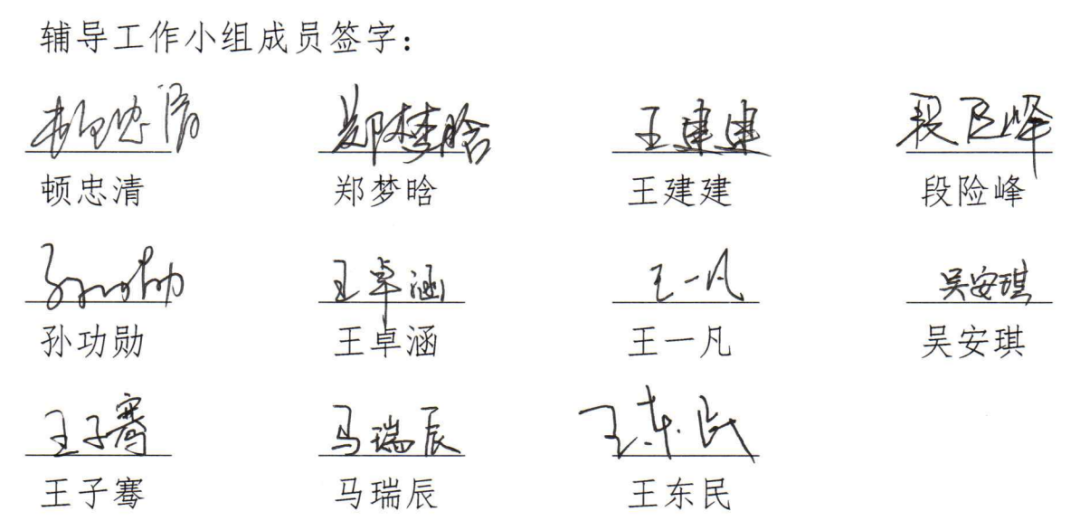 辅导工作小组成员签字：
郑梦晗 王建建 段险峰
顿忠清 郑梦晗 王建建 段险峰
王卓涵 王一凡 吴安琪
孙功勋 王卓涵 王一凡 吴安琪
王子骞 马瑞辰 王东民
王子骞 马瑞辰 王东民